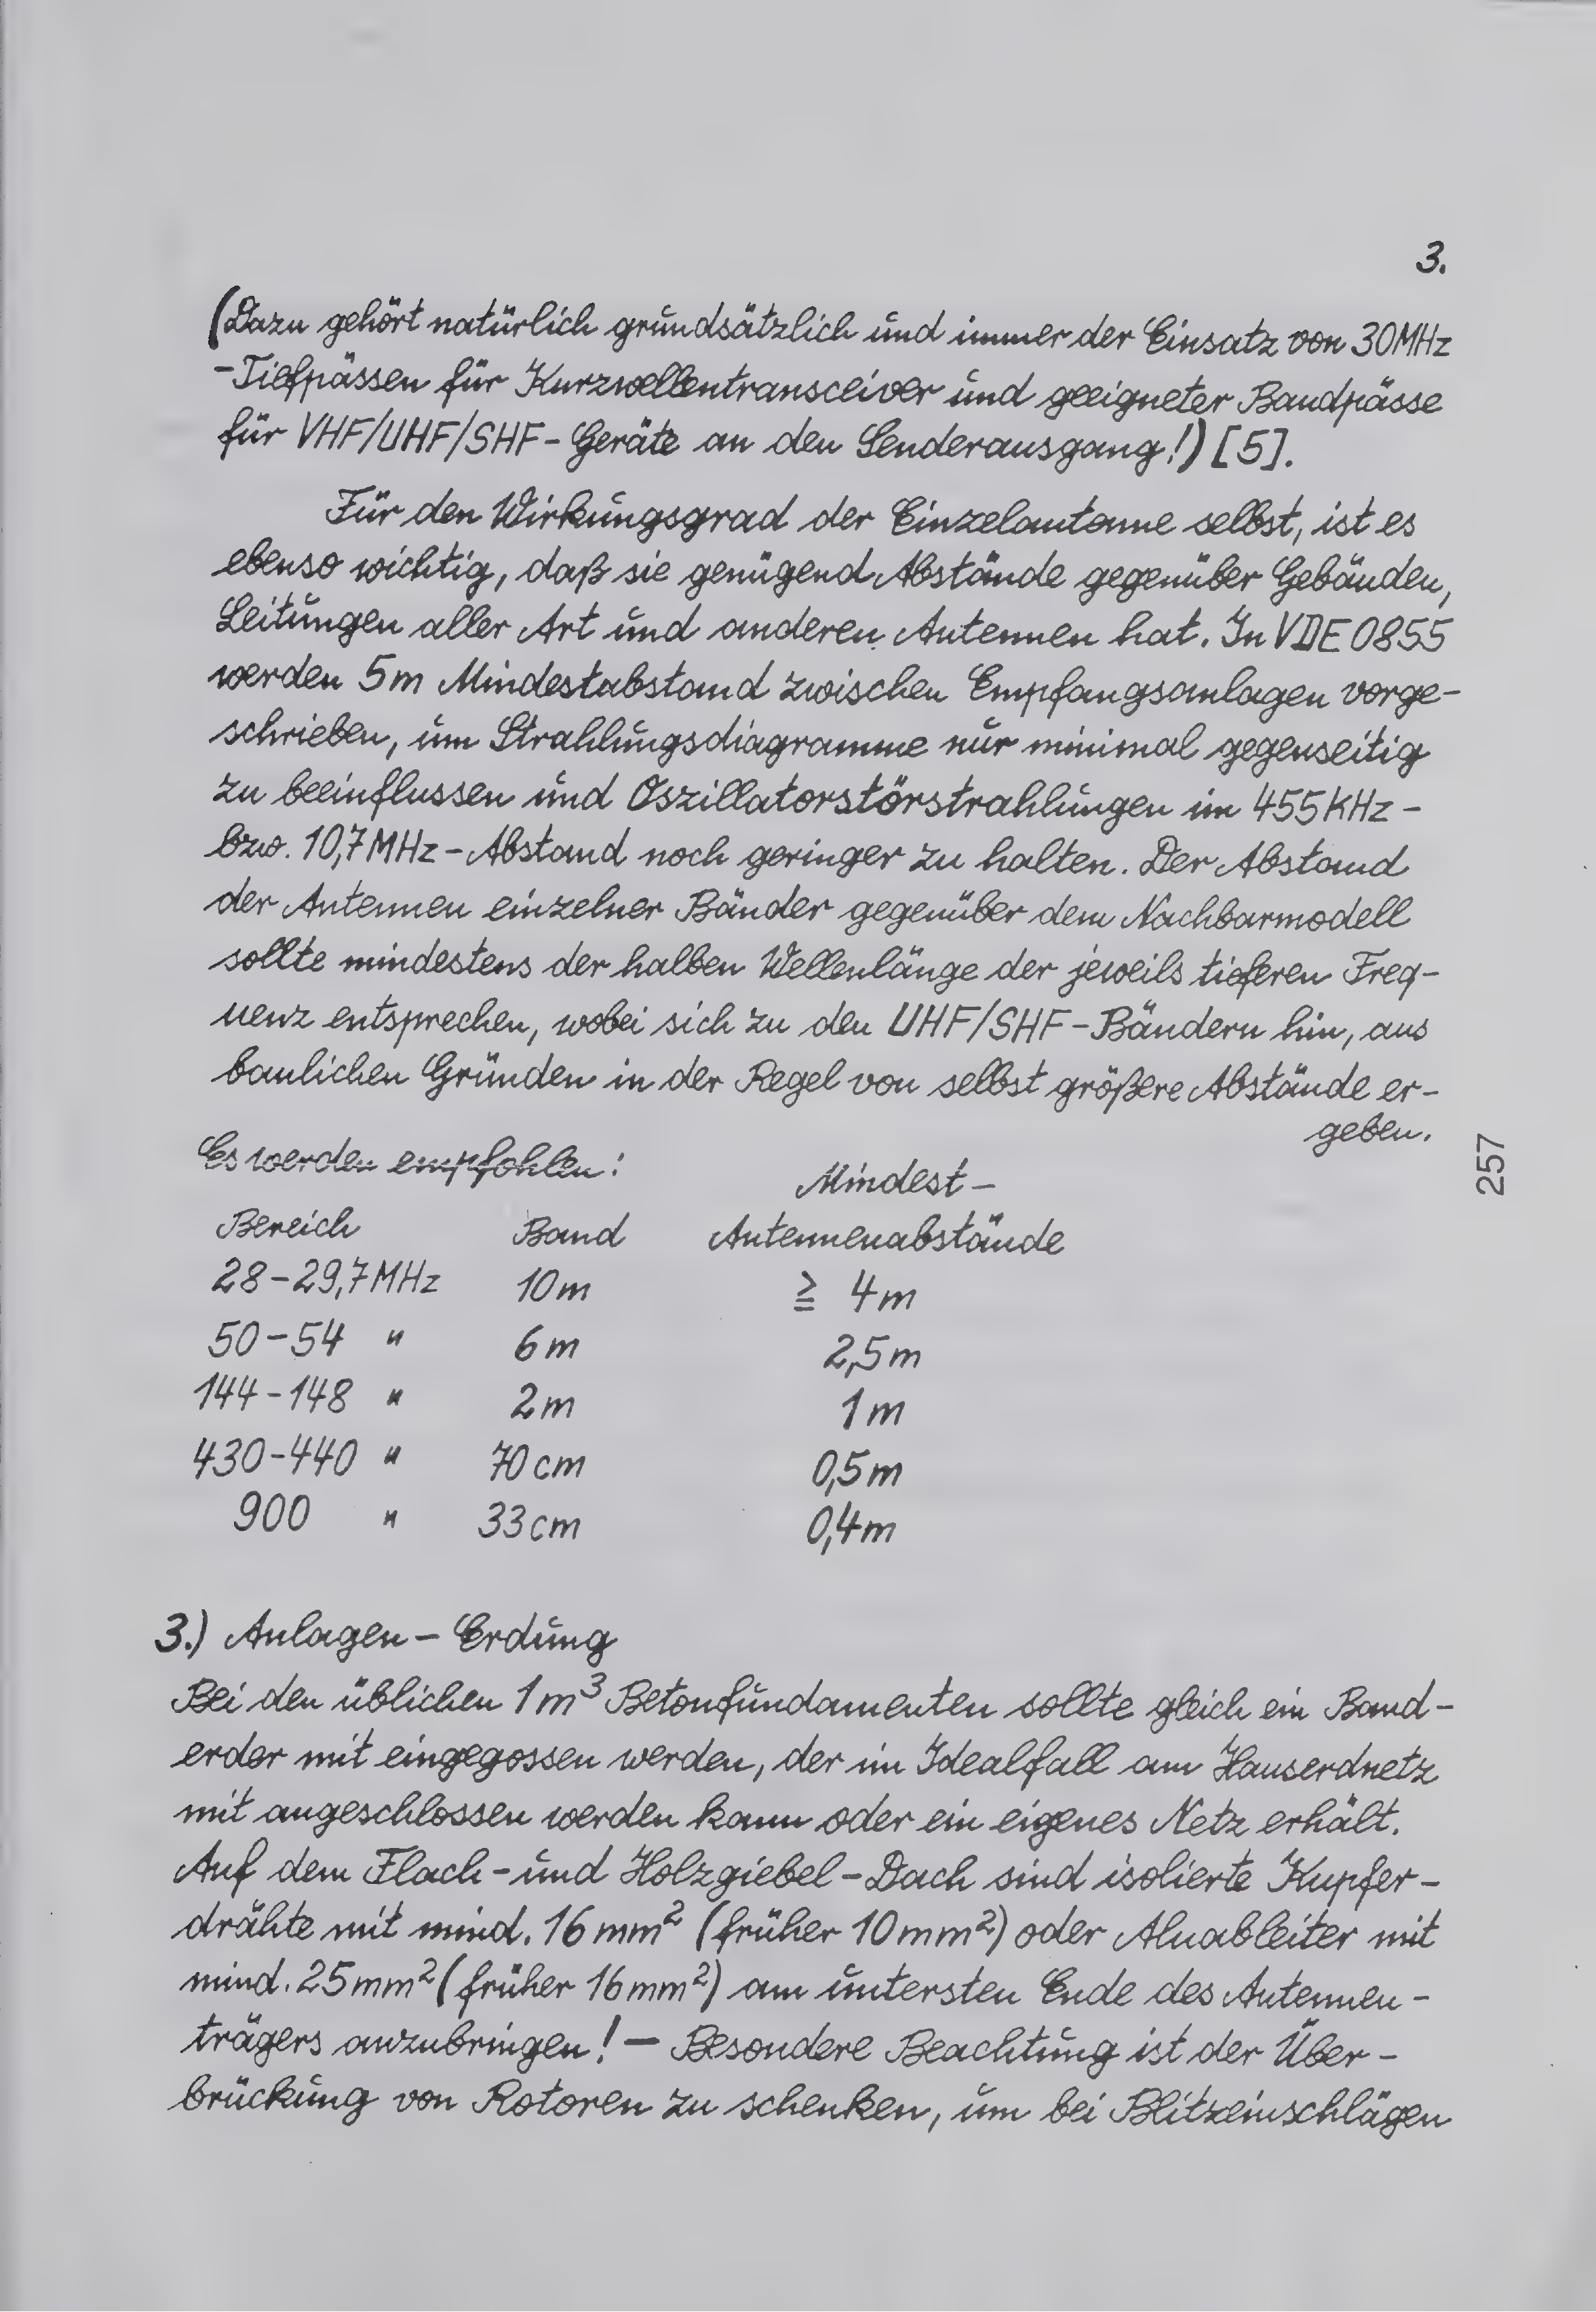 3.
(Dazu gehört natürlich grundsätzlich und immer der Einsatz von 30MHz
-Tiefpässen für Kurzwellentransceiver und geeigneter Bandpässe
für VHF/UHF/SHF-Geräte an den Senderausgang!) [5].
Für den Wirkungsgrad der Einzelantenne selbst, ist es
ebenso wichtig, daß sie genügend Abstände gegenüber Gebäuden,
Leitungen aller Art und anderen Antennen hat. In VDE 0855
werden 5m Mindestabstand zwischen Empfangsanlagen vorge-
schrieben, um Strahlungsdiagramme nur minimal gegenseitig
zu beeinflussen und Oszillatorstörstrahlungen im 455KHz-
bzw. 10,7MHz-Abstand noch geringer zu halten. Der Abstand
der Antennen einzelner Bänder gegenüber dem Nachbarmodell
sollte mindestens der halben Wellenlänge der jeweils tieferen Freq-
uenz entsprechen, wobei sich zu den UHF/SHF-Bändern hin, aus
baulichen Gründen in der Regel von selbst größere Abstände er-
geben.
257
Es werden empfohlen:
Mindest-
Bereich Band Antennenabstände
28-29,7MHz 10m ≧ 4m
50-54 " 6m 2,5m
144-148 " 2m 1m
430-440 " 70cm 0,5m
900 " 33cm 0,4m
3.) Anlagen-Erdung
Bei den üblichen 1m³ Betonfundamenten sollte gleich ein Band-
erder mit eingegossen werden, der im Idealfall am Hauserdnetz
mit angeschlossen werden kann oder ein eigenes Netz erhält.
Auf dem Flach-und Holzgiebel-Dach sind isolierte Kupfer-
drähte mit mind. 16mm² (früher 10mm²) oder Aluableiter mit
mind. 25mm² (früher 16mm²) am untersten Ende des Antennen-
trägers anzubringen! — Besondere Beachtung ist der Über-
brückung von Rotoren zu schenken, um bei Blitzeinschlägen